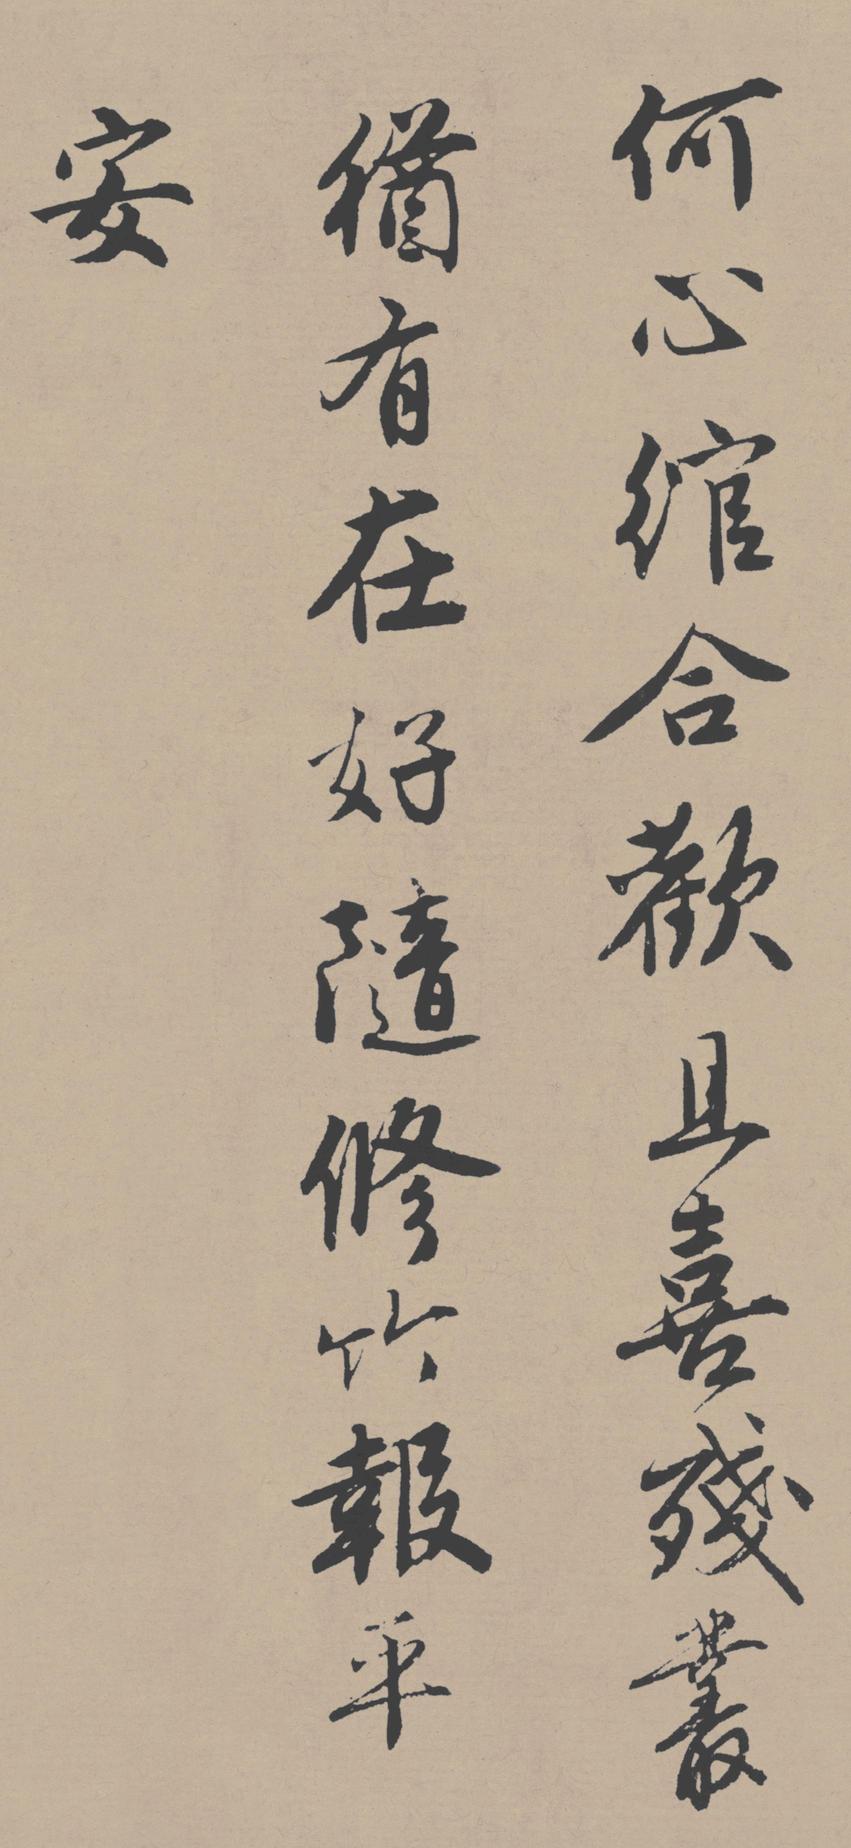 何心綰合歡且喜殘叢
猶有在好隨脩竹報平
安